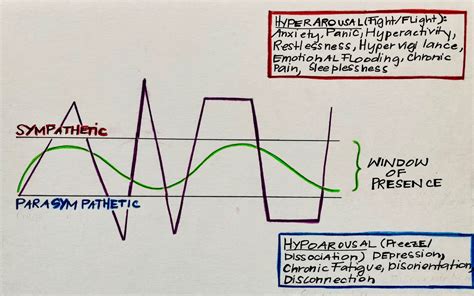 HYPERAROUSAL (Fight/Flight):
Anxiety, Panic, Hyperactivity,
Restlessness, Hypervigilance,
Emotional Flooding, Chronic
Pain, Sleeplessness
SYMPATHETIC
WINDOW
OF
PRESENCE
PARASYMPATHETIC
HYPOAROUSAL (Freeze/
Dissociation) Depression,
Chronic Fatigue, Disorientation,
Disconnection